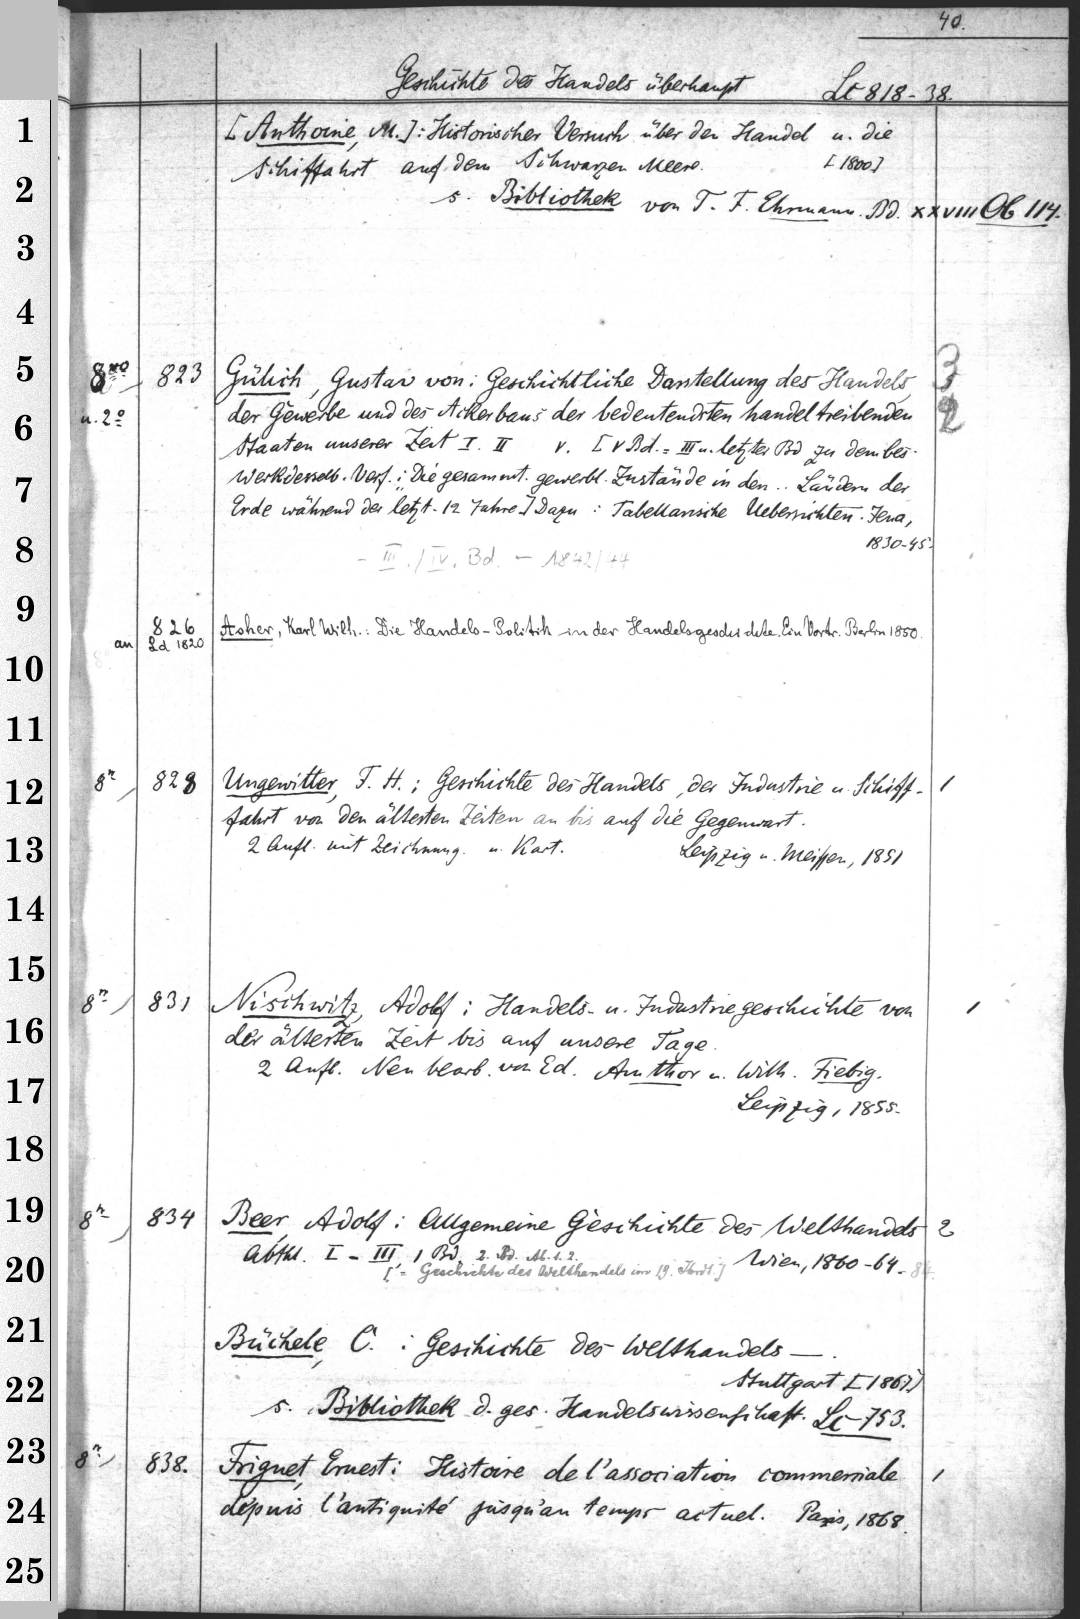 40.
Geschichte des Handels überhaupt Lc 818-38.
1 [Anthoine, M.]: Historischer Versuch über den Handel u. die
Schiffahrt auf dem Schwarzen Meere. [1800]
2 s. Bibliothek von T. F. Ehrmann. Bd. XXVIII Ob 114.
3
4
5 8vo 823 Gülich, Gustav von: Geschichtliche Darstellung des Handels, 3
6 u. 2o der Gewerbe und des Ackerbaus der bedeutendsten handeltreibenden 2
Staaten unserer Zeit I. II V. [V Bd. = III u. letzter Bd zu dem bes.
7 Werk desselb. Verf.: Die gesammt. gewerbl. Zustände in den .. Ländern der
Erde während der letzt. 12 Jahre.] Dazu: Tabellarische Uebersichten. Jena,
8 1830-45.
- III./IV. Bd. - 1842/44
9
an 826 Ld 1820 Asher, Karl Wilh.: Die Handels-Politik in der Handelsgeschichte. Ein Vortr. Berlin 1850.
10
11
12 8o 828 Ungewitter, F. H.: Geschichte des Handels, der Industrie u. Schiff- 1
fahrt von den ältesten Zeiten an bis auf die Gegenwart.
13 2 Aufl. mit Zeichnung. u. Kart. Leipzig u. Meißen, 1851
14
15
8o 831 Nischwitz, Adolf: Handels- u. Industriegeschichte von 1
16 der ältesten Zeit bis auf unsere Tage.
2 Aufl. Neu bearb. von Ed. Amthor u. Wilh. Fiebig.
17 Leipzig, 1855.
18
19 8o 834 Beer, Adolf: Allgemeine Geschichte des Welthandels 2
Abthl. I - III, 1 Bd. 2. Bd. Ab. 1. 2. Wien, 1860-64-84.
20 [= Geschichte des Welthandels im 19. Jhrdt]
21 Büchele, C.: Geschichte des Welthandels —.
22 Stuttgart [1867]
s. Bibliothek d. ges. Handelswissenschaft. Lc 753.
23 8o 838. Frignet, Ernest: Histoire de l'association commerciale 1
24 depuis l'antiquité jusqu'au temps actuel. Paris, 1868.
25